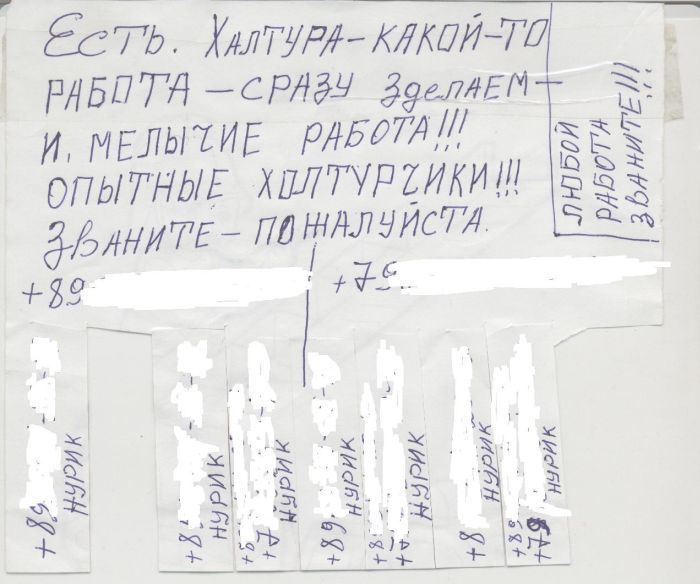 Есть. Халтура-какой-то
работа - сразу зделаем -
и. мелычие работа!!!
опытные холтурчики!!!
Званите - пожалуйста.
Любой
работа
званите!!!
+89
+79
+89
Нурик
+8
Нурик
+8
+7
Нурик
+89
Нурик
+8
+7
Нурик
+8
Нурик
+89
+79
Нурик